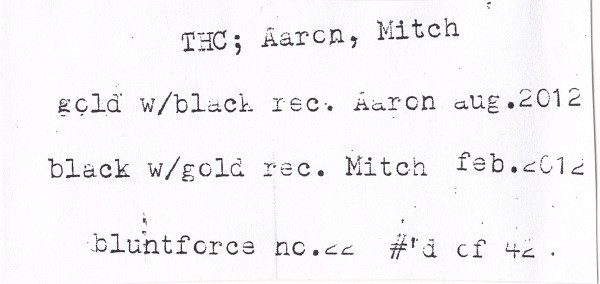 THC; Aaron, Mitch
gold w/black rec. Aaron aug.2012
black w/gold rec. Mitch feb.2012
bluntforce no.22 #'d of 42.